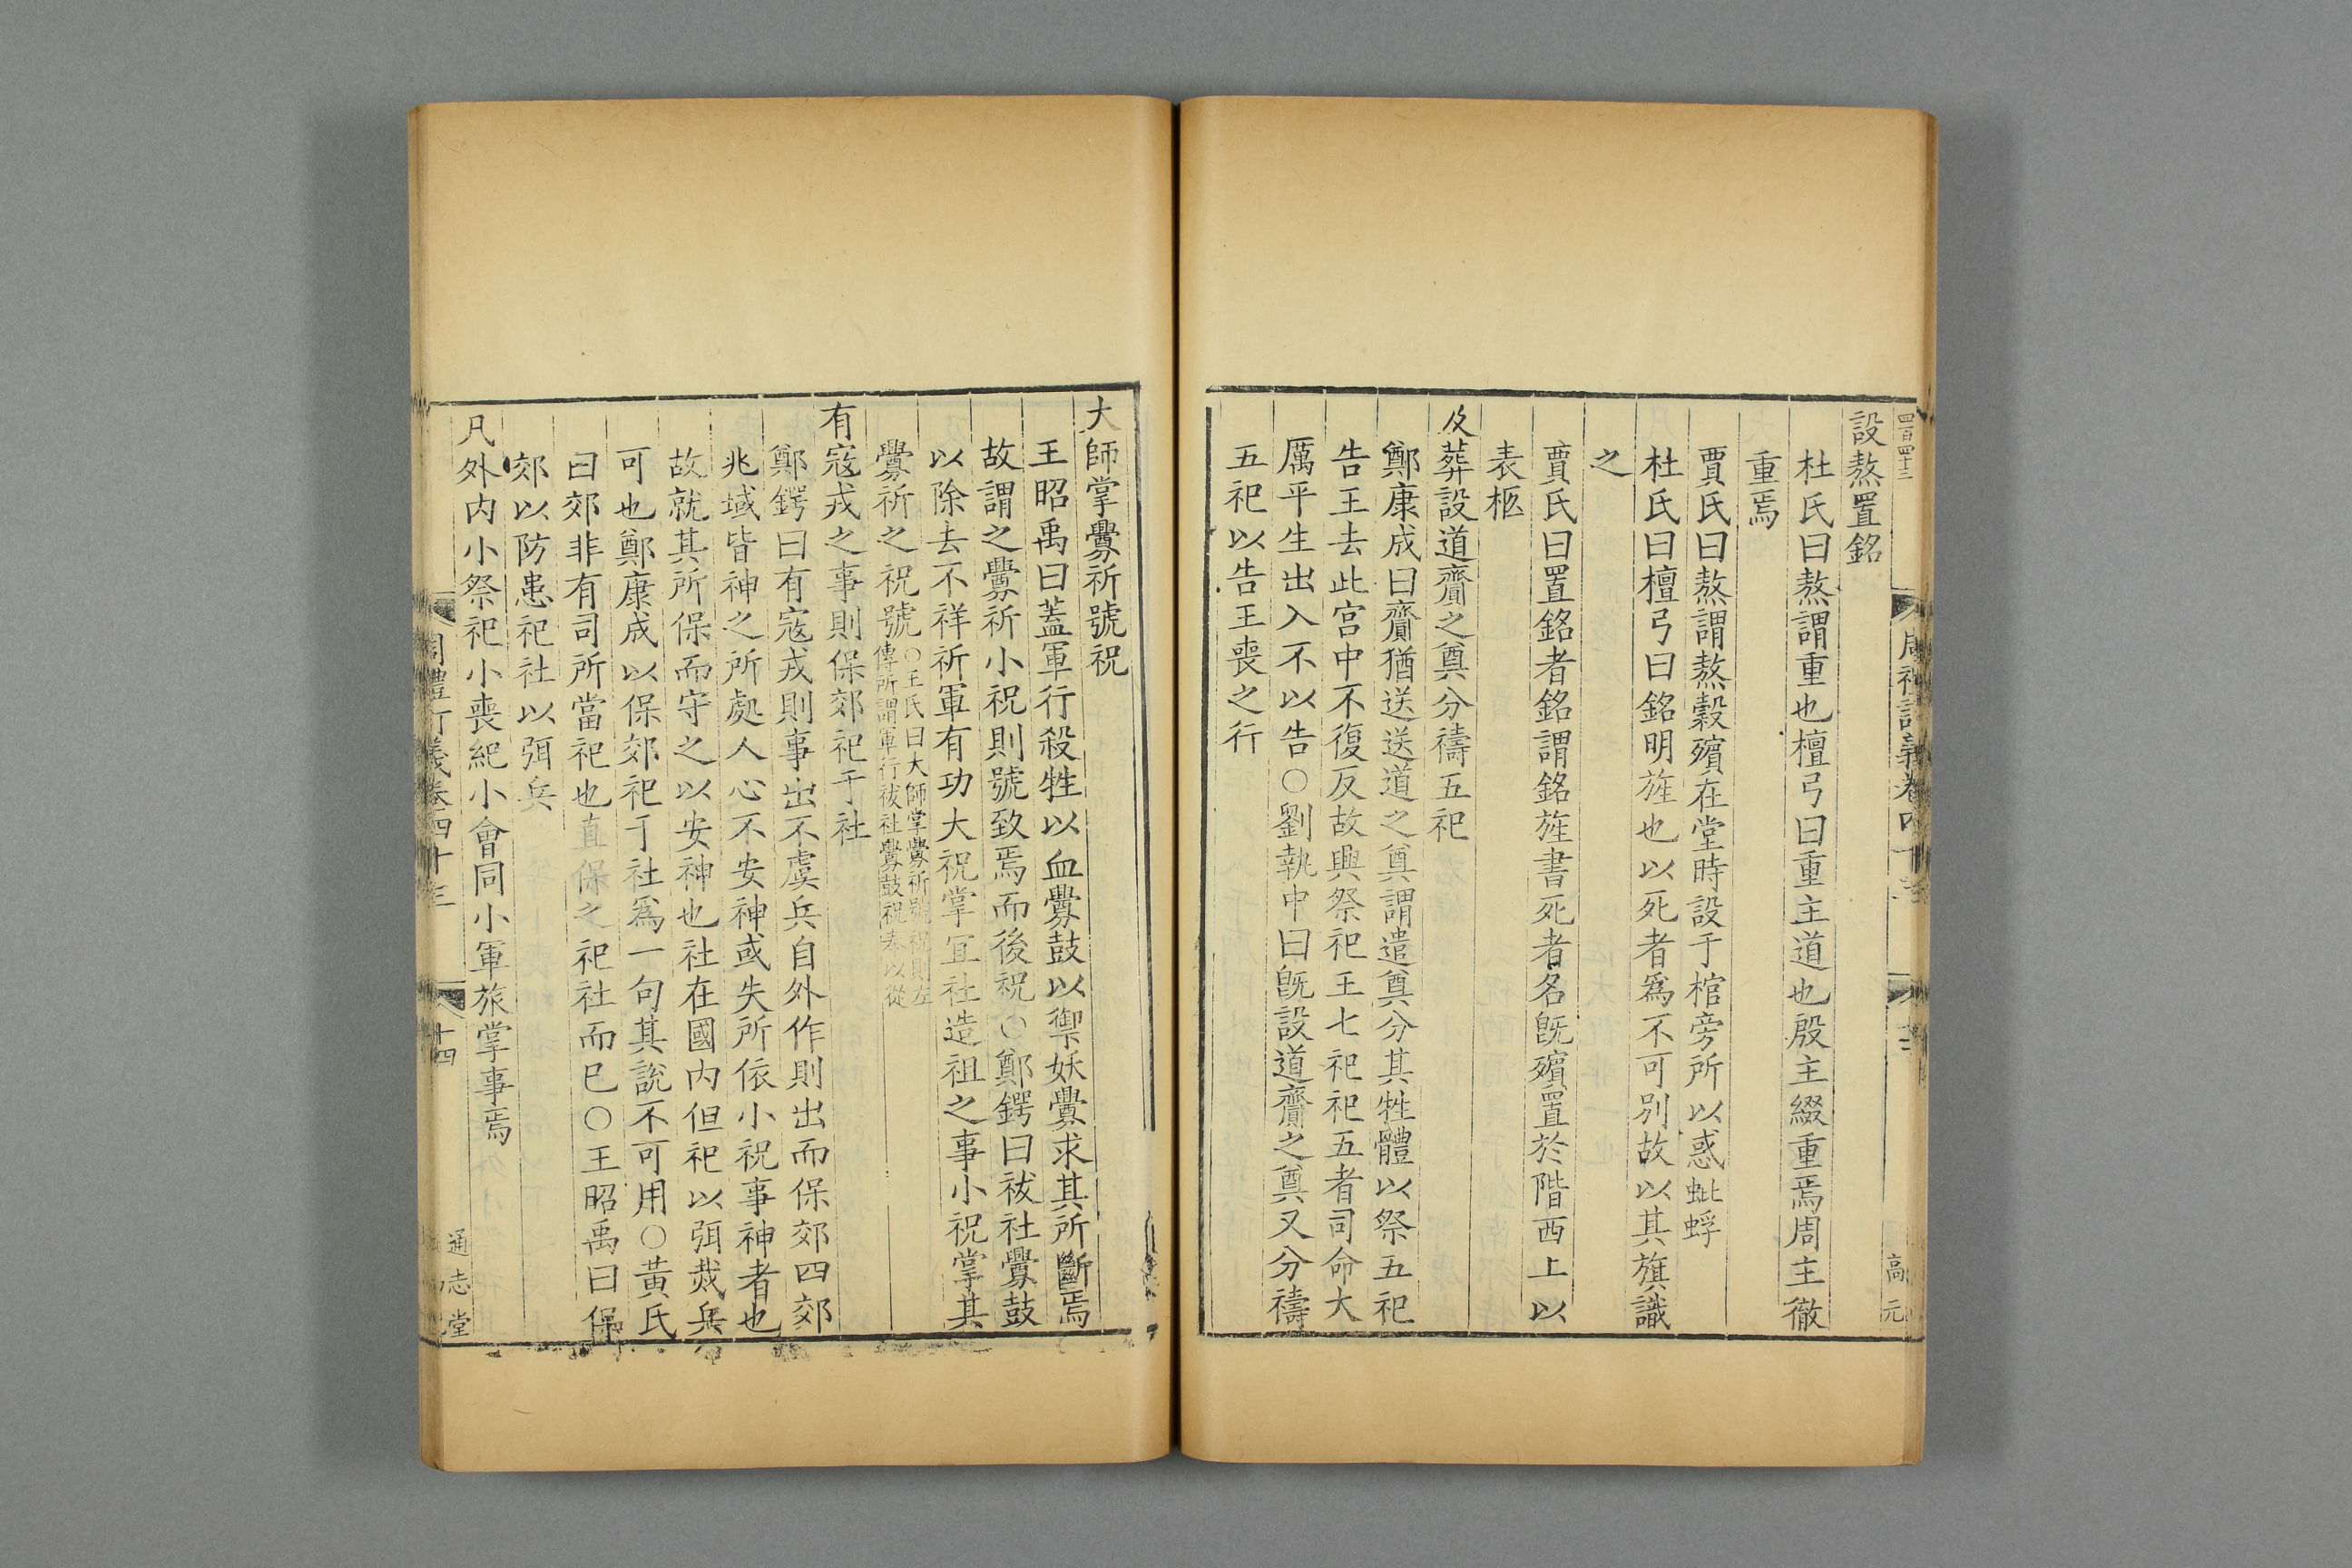 四百四十三
設熬置銘
杜氏曰熬謂重也檀弓曰重主道也殷主綴重焉周主徹
重焉
賈氏曰熬謂熬穀殯在堂時設于棺旁所以惑蚍蜉
杜氏曰檀弓曰銘明旌也以死者爲不可別故以其旗識
之
賈氏曰置銘者銘謂銘旌書死者名旣殯置於階西上以
表柩
及葬設道齎之奠分禱五祀
鄭康成曰齎猶送送道之奠謂遣奠分其牲體以祭五祀
告王去此宮中不復反故興祭祀王七祀祀五者司命大
厲平生出入不以告○劉執中曰旣設道齎之奠又分禱
五祀以告王喪之行
高元
大師掌釁祈號祝
王昭禹曰蓋軍行殺牲以血釁鼓以禦妖釁求其所斷焉
故謂之釁祈小祝則號致焉而後祝○鄭鍔曰祓社釁鼓
以除去不祥祈軍有功大祝掌宜社造祖之事小祝掌其
釁祈之祝號○王氏曰大師掌釁祈號祝則左
傳所謂軍行祓社釁鼓祝奉以從
有寇戎之事則保郊祀于社
鄭鍔曰有寇戎則事出不虞兵自外作則出而保郊四郊
兆域皆神之所處人心不安神或失所依小祝事神者也
故就其所保而守之以安神也社在國内但祀以弭烖兵
可也鄭康成以保郊祀于社爲一句其說不可用○黃氏
曰郊非有司所當祀也直保之祀社而巳○王昭禹曰保
郊以防患祀社以弭兵
凡外内小祭祀小喪紀小會同小軍旅掌事焉
周禮訂義卷四十三
十四
通志堂